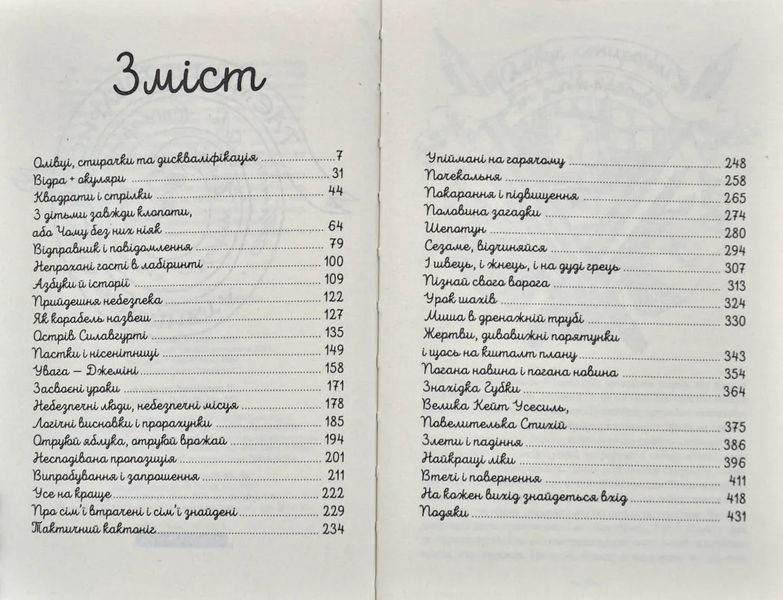 Зміст
Олівці, стирачки та дискваліфікація ........ 7
Відра + окуляри ........ 31
Квадрати і стрілки ........ 44
З дітьми завжди клопоти,
або Чому без них ніяк ........ 64
Відправник і повідомлення ........ 79
Непрохані гості в лабіринті ........ 100
Азбуки й історії ........ 109
Прийдешня небезпека ........ 122
Як корабель назвеш ........ 127
Острів Силавгурті ........ 135
Пастки і нісенітниці ........ 149
Увага — Джеміні ........ 158
Засвоєні уроки ........ 171
Небезпечні люди, небезпечні місця ........ 178
Логічні висновки і прорахунки ........ 185
Отруюй яблука, отруюй врожай ........ 194
Несподівана пропозиція ........ 201
Випробування і запрошення ........ 211
Усе на краще ........ 222
Про сім'ї втрачені і сім'ї знайдені ........ 229
Тактичний кактоніг ........ 234
Упіймані на гарячому ........ 248
Почекальня ........ 258
Покарання і підвищення ........ 265
Половина загадки ........ 274
Шепотун ........ 280
Сезаме, відчиняйся ........ 294
І швець, і жнець, і на дуді грець ........ 307
Пізнай свого ворога ........ 313
Урок шахів ........ 324
Миша в дренажній трубі ........ 330
Жертви, дивовижні порятунки
і щось на кшталт плану ........ 343
Погана новина і погана новина ........ 354
Знахідка Губки ........ 364
Велика Кейт Усесиль,
Повелителька Стихій ........ 375
Злети і падіння ........ 386
Найкращі ліки ........ 396
Втечі і повернення ........ 411
На кожен вихід знайдеться вхід ........ 418
Подяки ........ 431